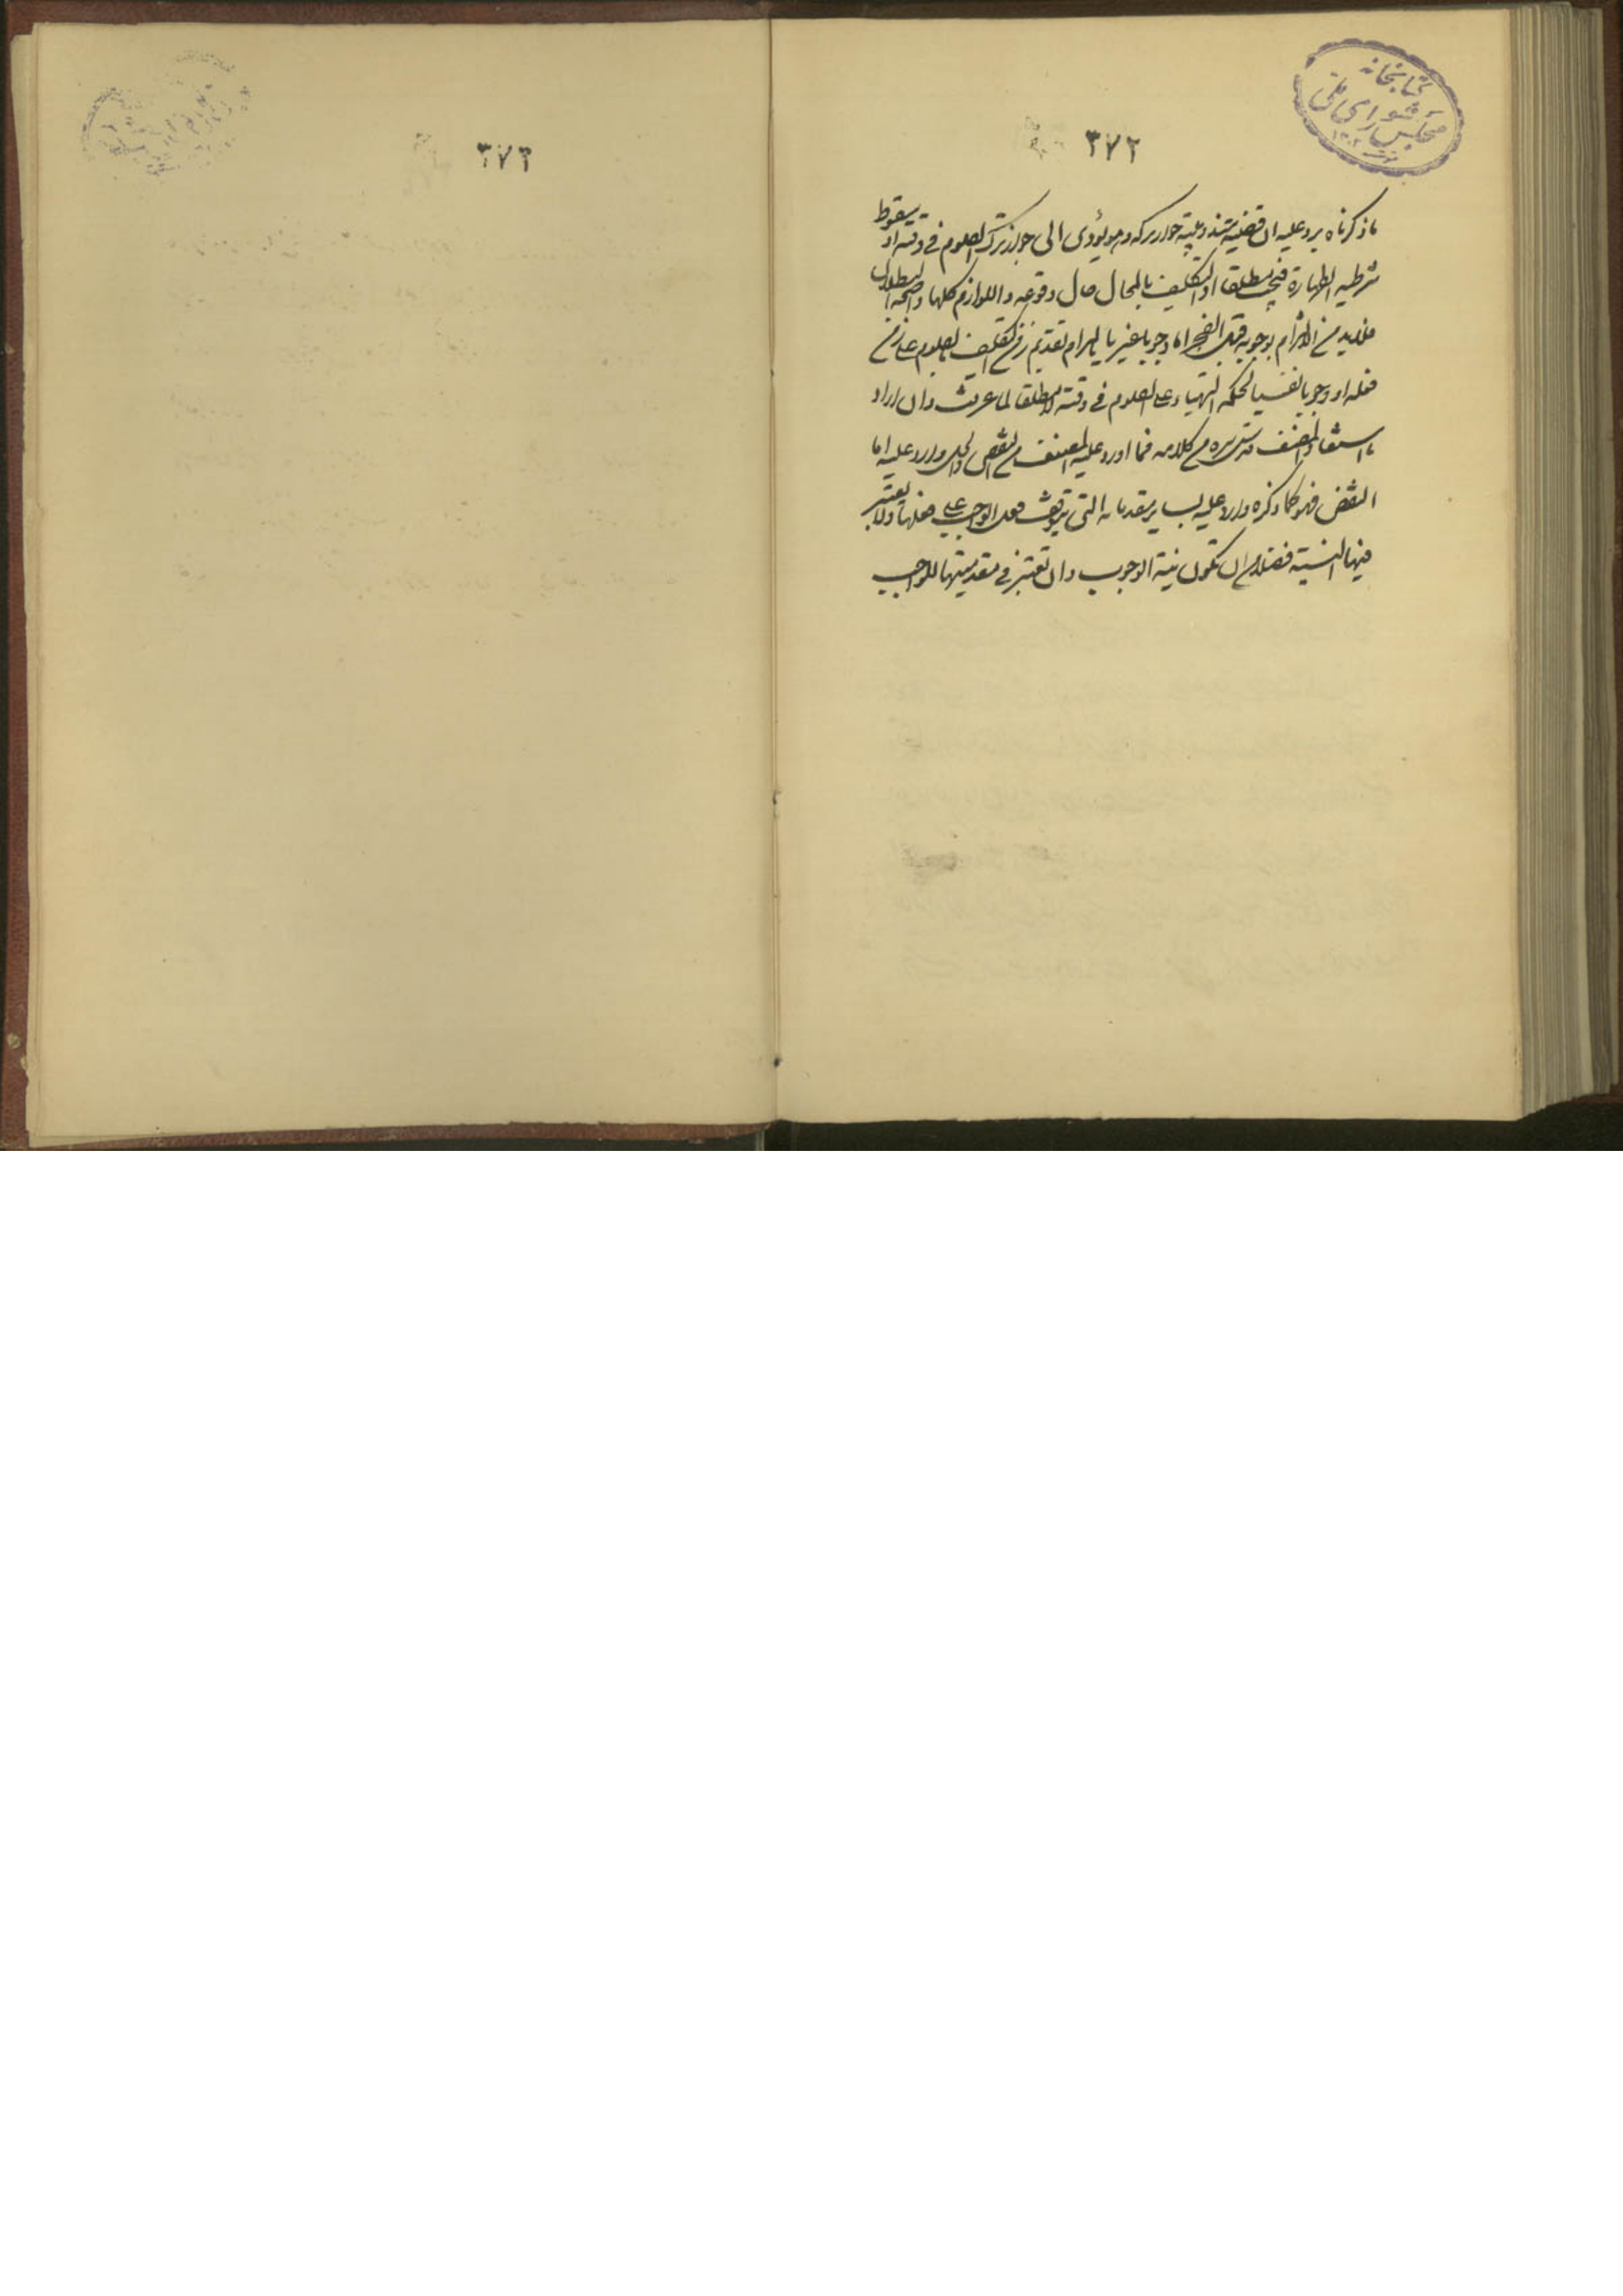 کتابخانه
مجلس شورای ملی
٣٧٢
ما ذكرناه يرد عليه ان قضية جواز تركه وهو يؤدى الى جواز ترك الصوم فى وقته او سقوط
شرطيه الطهارة فيجب مطلقا او التكليف بالمحال حال وقوعه واللوازم كلها واضحة البطلان
فلابد من الالتزام بوجوبه قبل الفجر اما وجوبا غيريا بالتزام تقديم زمن التكليف بالصوم على زمن
فعله او وجوبا نفسيا لحكمة التهيا على الصوم فى وقته لا مطلقا لما عرفت وان اراد
ما استفاد المصنف قدس سره من كلامه فما اورد عليه المصنف من النقض والحل وارد عليه اما
النقض فهو كما ذكره وارد عليه بساير مقدماته التى يتوقف فعل الواجب على فعلها ولا يعتبر
فيها النية فضلا من ان تكون نية الوجوب وان تعتبر فى مقدميتها للواجب
٣٧٣